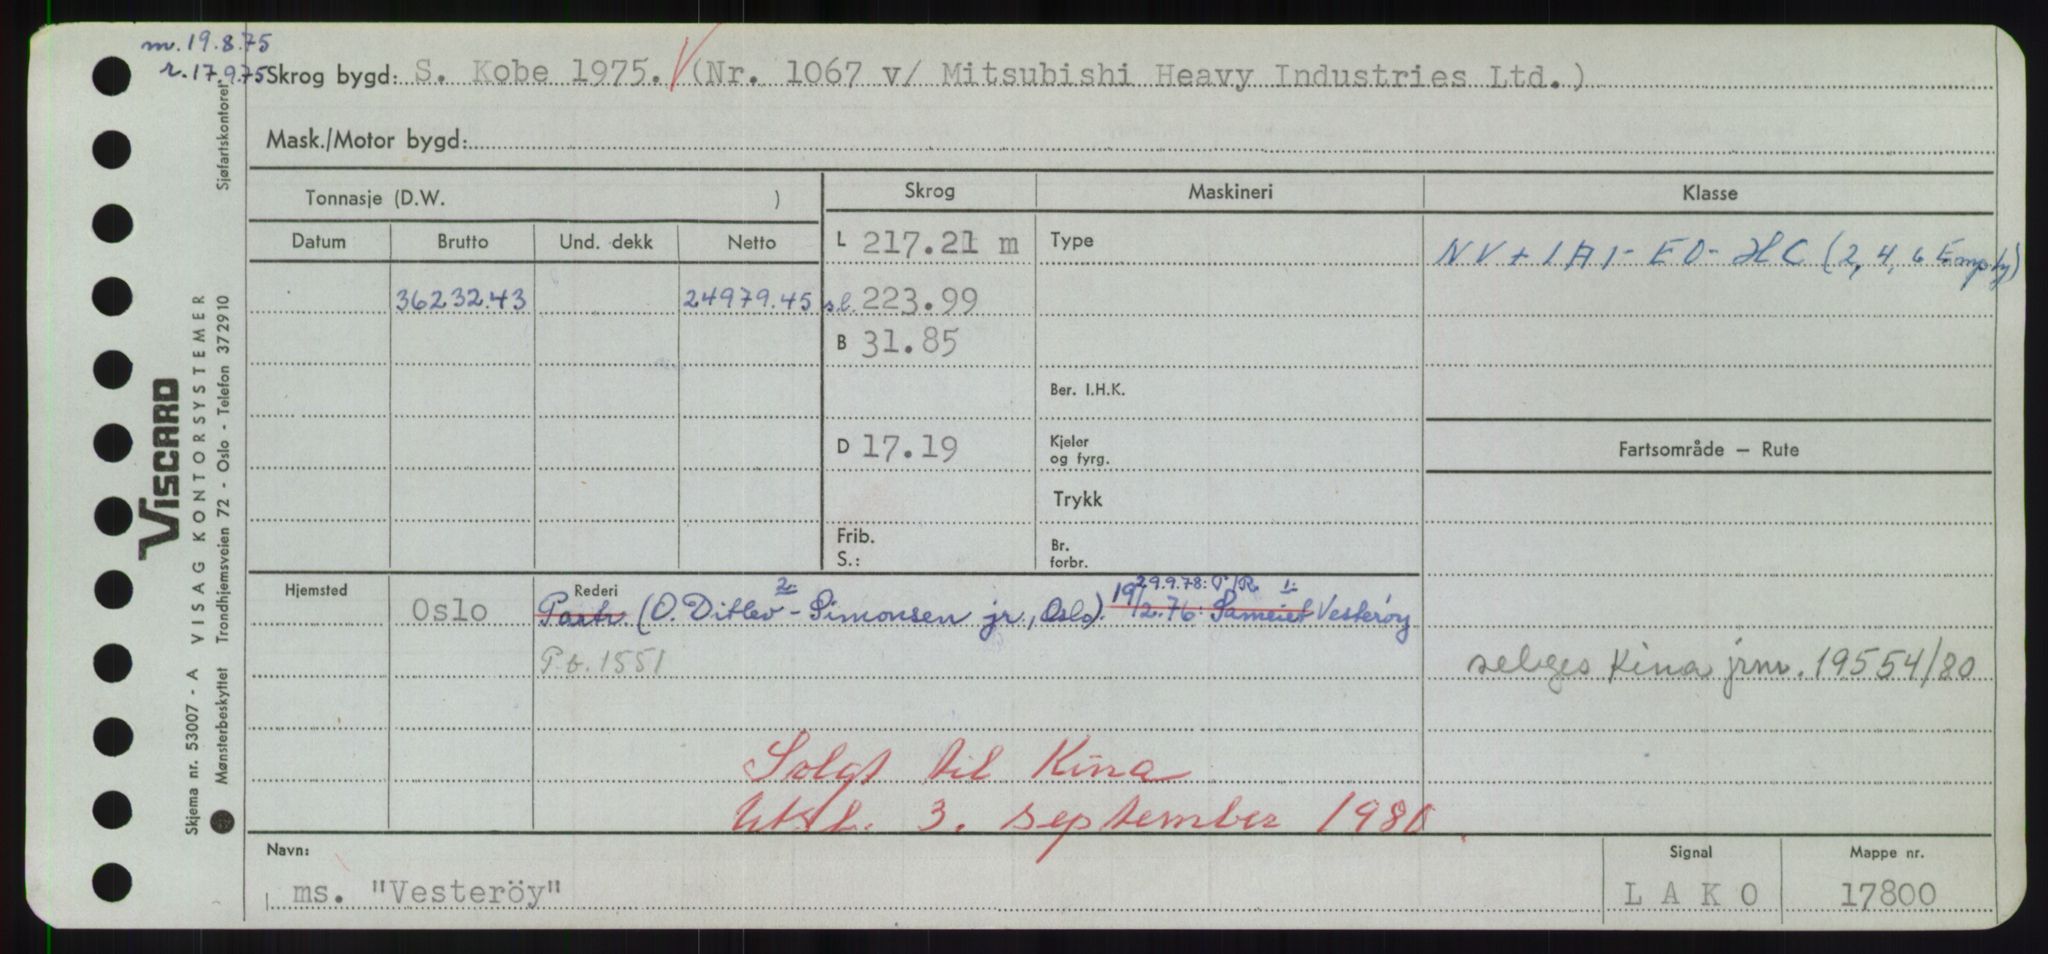 m. 19.8.75
r. 17.9.75
Skrog bygd: S. Kobe 1975. (Nr. 1067 v/ Mitsubishi Heavy Industries Ltd.)
Mask./Motor bygd:
Tonnasje (D.W. )
Skrog
Maskineri
Klasse
Datum
Brutto
Und. dekk
Netto
L 217.21 m
Type
NV + 1A1 - EO - HC (2, 4, 6 Empty)
36232.43
24979.45
sl. 223.99
B 31.85
Ber. I.H.K.
D 17.19
Kjeler
og fyrg.
Fartsområde – Rute
Trykk
Frib.
S.:
Br.
forbr.
Hjemsted
Rederi
2.
29.9.78: P/R 1:
Oslo
Partr. (O. Ditlev-Simonsen jr., Oslo). 19/2.76: Sameiet Vesterøy
P.b. 1551
selges Kina jrnr. 19554/80
Solgt til Kina
Utsl. 3. september 1980.
Navn:
Signal
Mappe nr.
ms. "Vesteröy"
L A K O
17800
VISCARD
VISAG KONTORSYSTEMER
Skjema nr. 53007 - A
Mønsterbeskyttet
Trondhjemsveien 72 - Oslo - Telefon 372910
Sjøfartskontoret